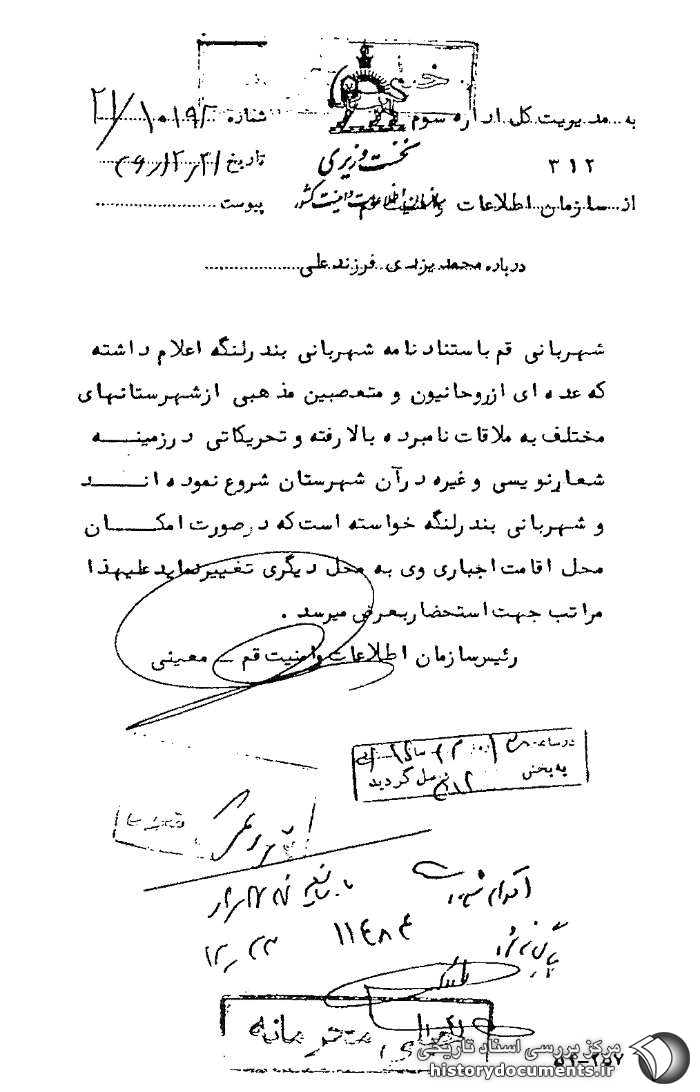 به مدیریت کل اداره سوم شماره ۲۱/۱۰۱۹۲
۳۱۲ نخست وزیری تاریخ
از سازمان اطلاعات و امنیت قم سازمان اطلاعات و امنیت کشور پیوست
درباره محمد یزدی فرزند علی
شهربانی قم باستناد نامه شهربانی بندرلنگه اعلام داشته
که عده ای از روحانیون و متعصبین مذهبی از شهرستانهای
مختلف به ملاقات نامبرده بالا رفته و تحریکاتی در زمینه
شعارنویسی و غیره در آن شهرستان شروع نموده اند
و شهربانی بندرلنگه خواسته است که در صورت امکان
محل اقامت اجباری وی به محل دیگری تغییر نماید علیهذا
مراتب جهت استحضار بعرض میرسد .
رئیس سازمان اطلاعات و امنیت قم - معینی
در ساعت روز
به بخش ۳۱۲ واصل گردید
اقدام شود
بایگانی شود
۱۱۴۸۴
محرمانه
مرکز بررسی اسناد تاریخی
historydocuments.ir